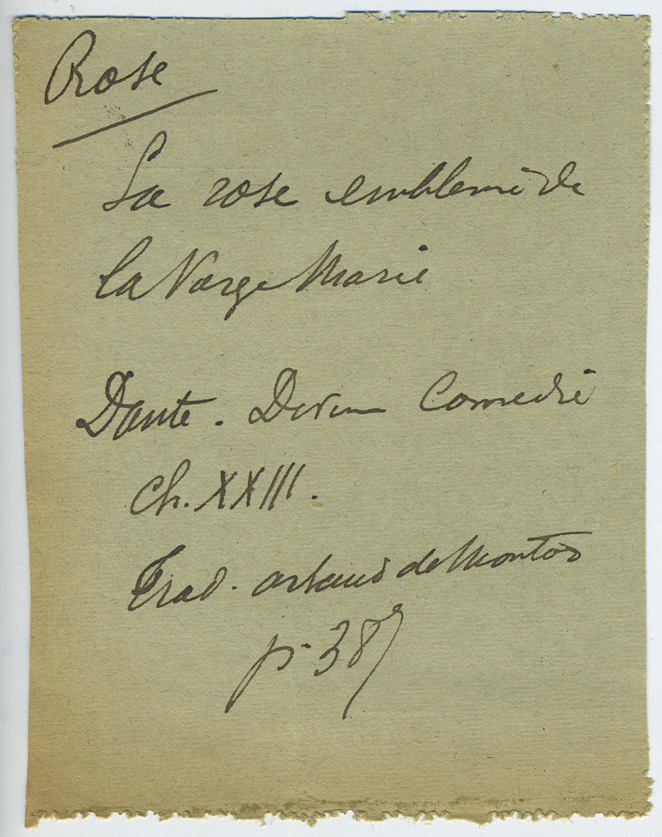 Rose
La rose emblème de
la Vierge Marie
Dante. Divine Comédie
ch. XXIII.
Trad. Artaud de Montor
p. 387